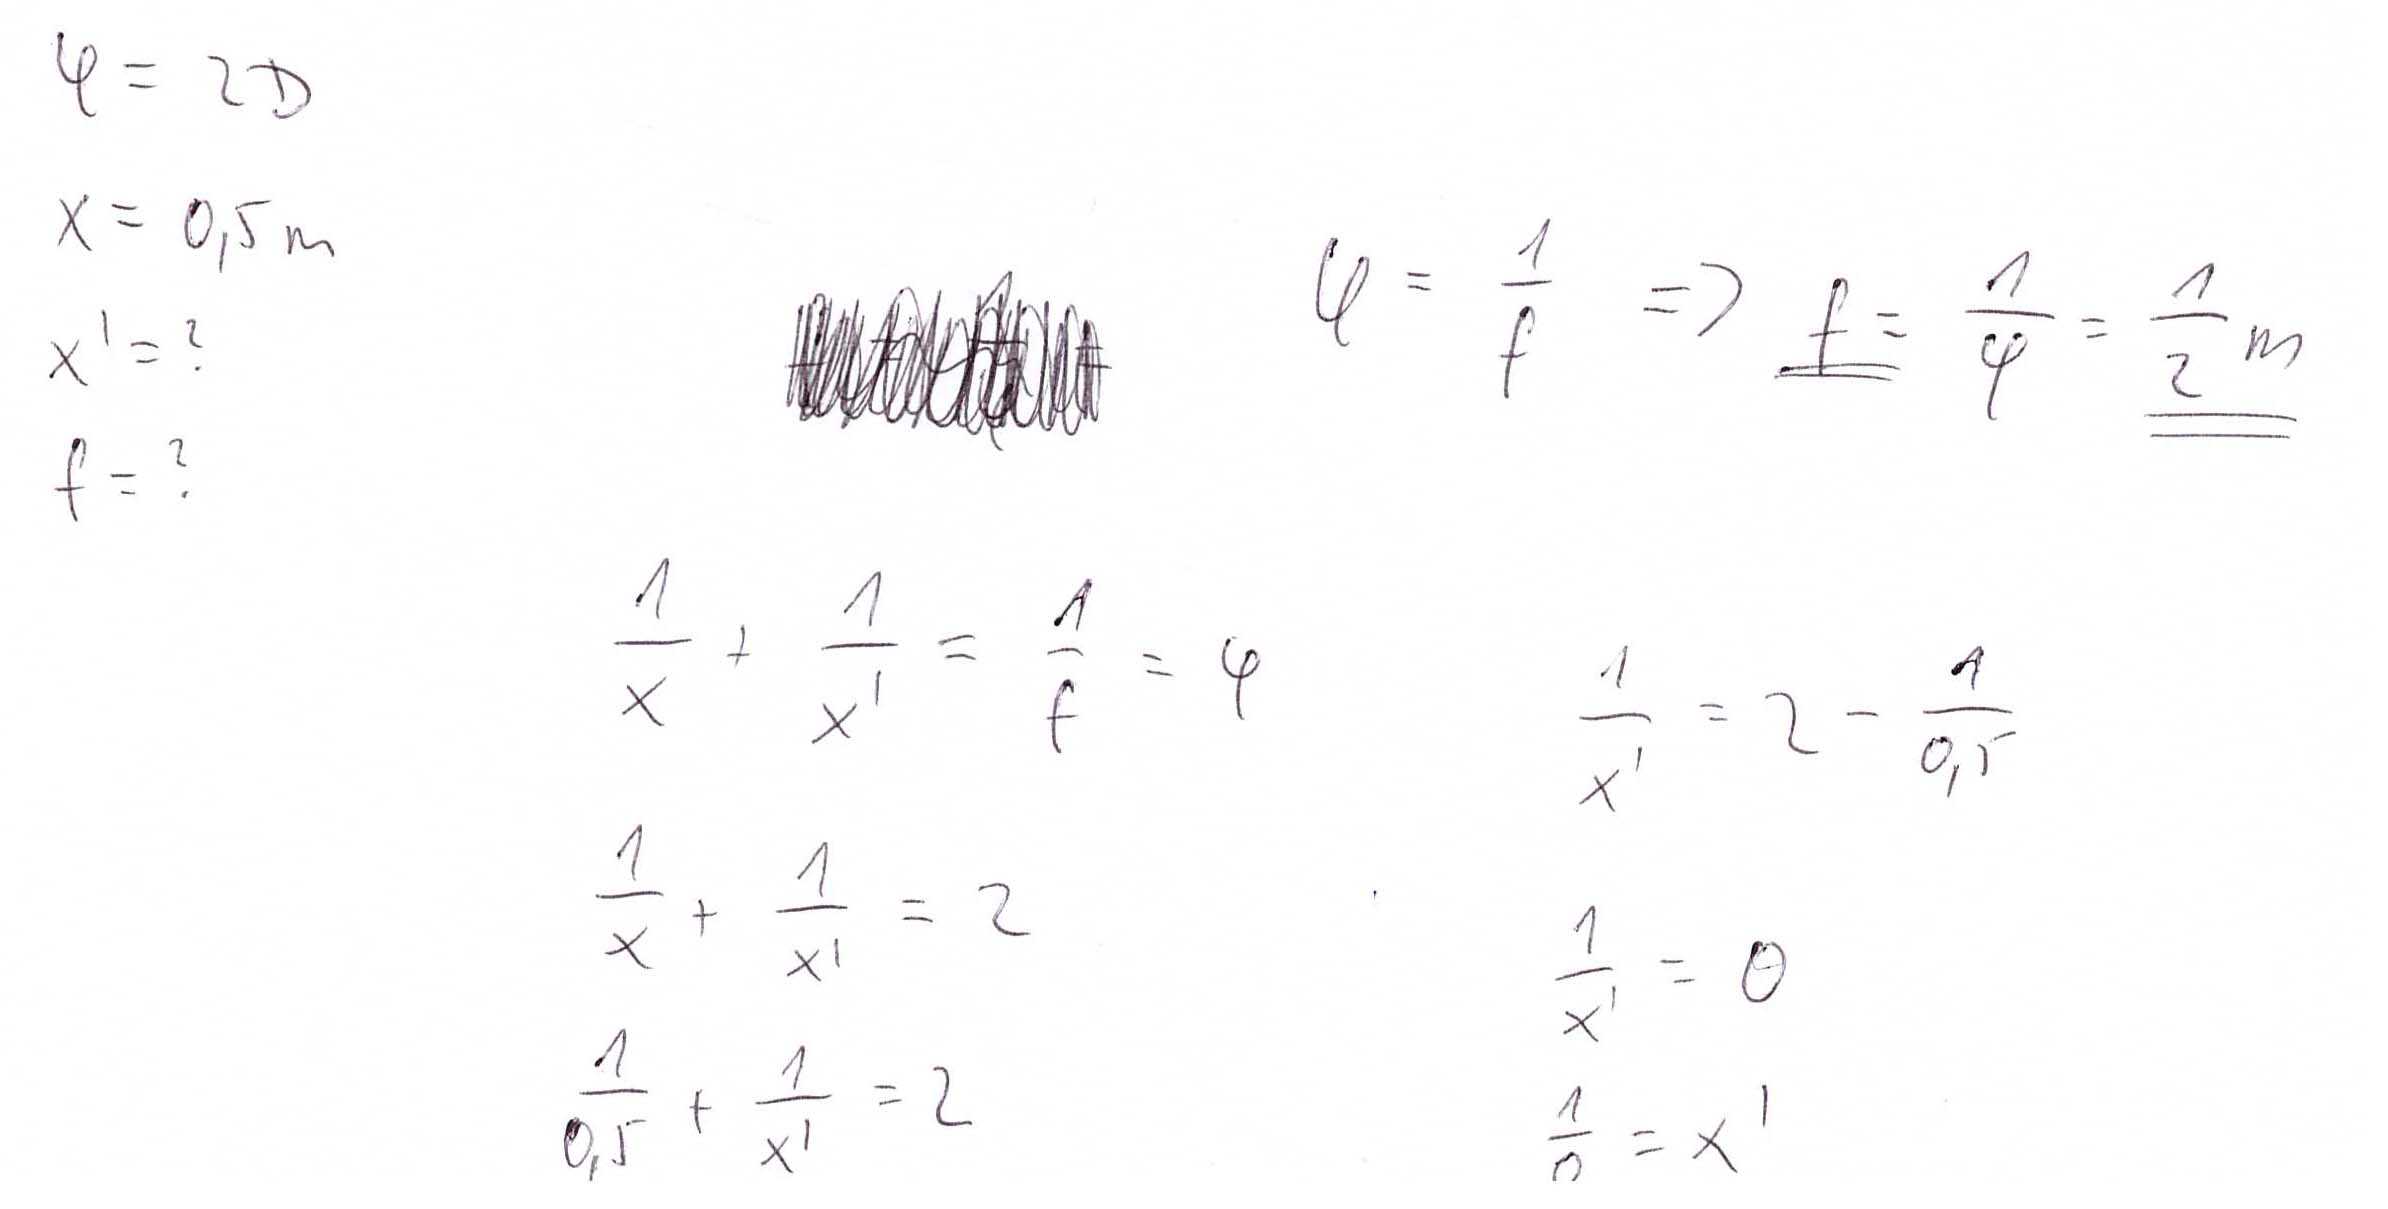 φ = 2D
x = 0,5m
x' = ?
f = ?
φ = 1/f => f = 1/φ = 1/2 m
1/x + 1/x' = 1/f = φ
1/x + 1/x' = 2
1/0,5 + 1/x' = 2
1/x' = 2 - 1/0,5
1/x' = 0
1/0 = x'